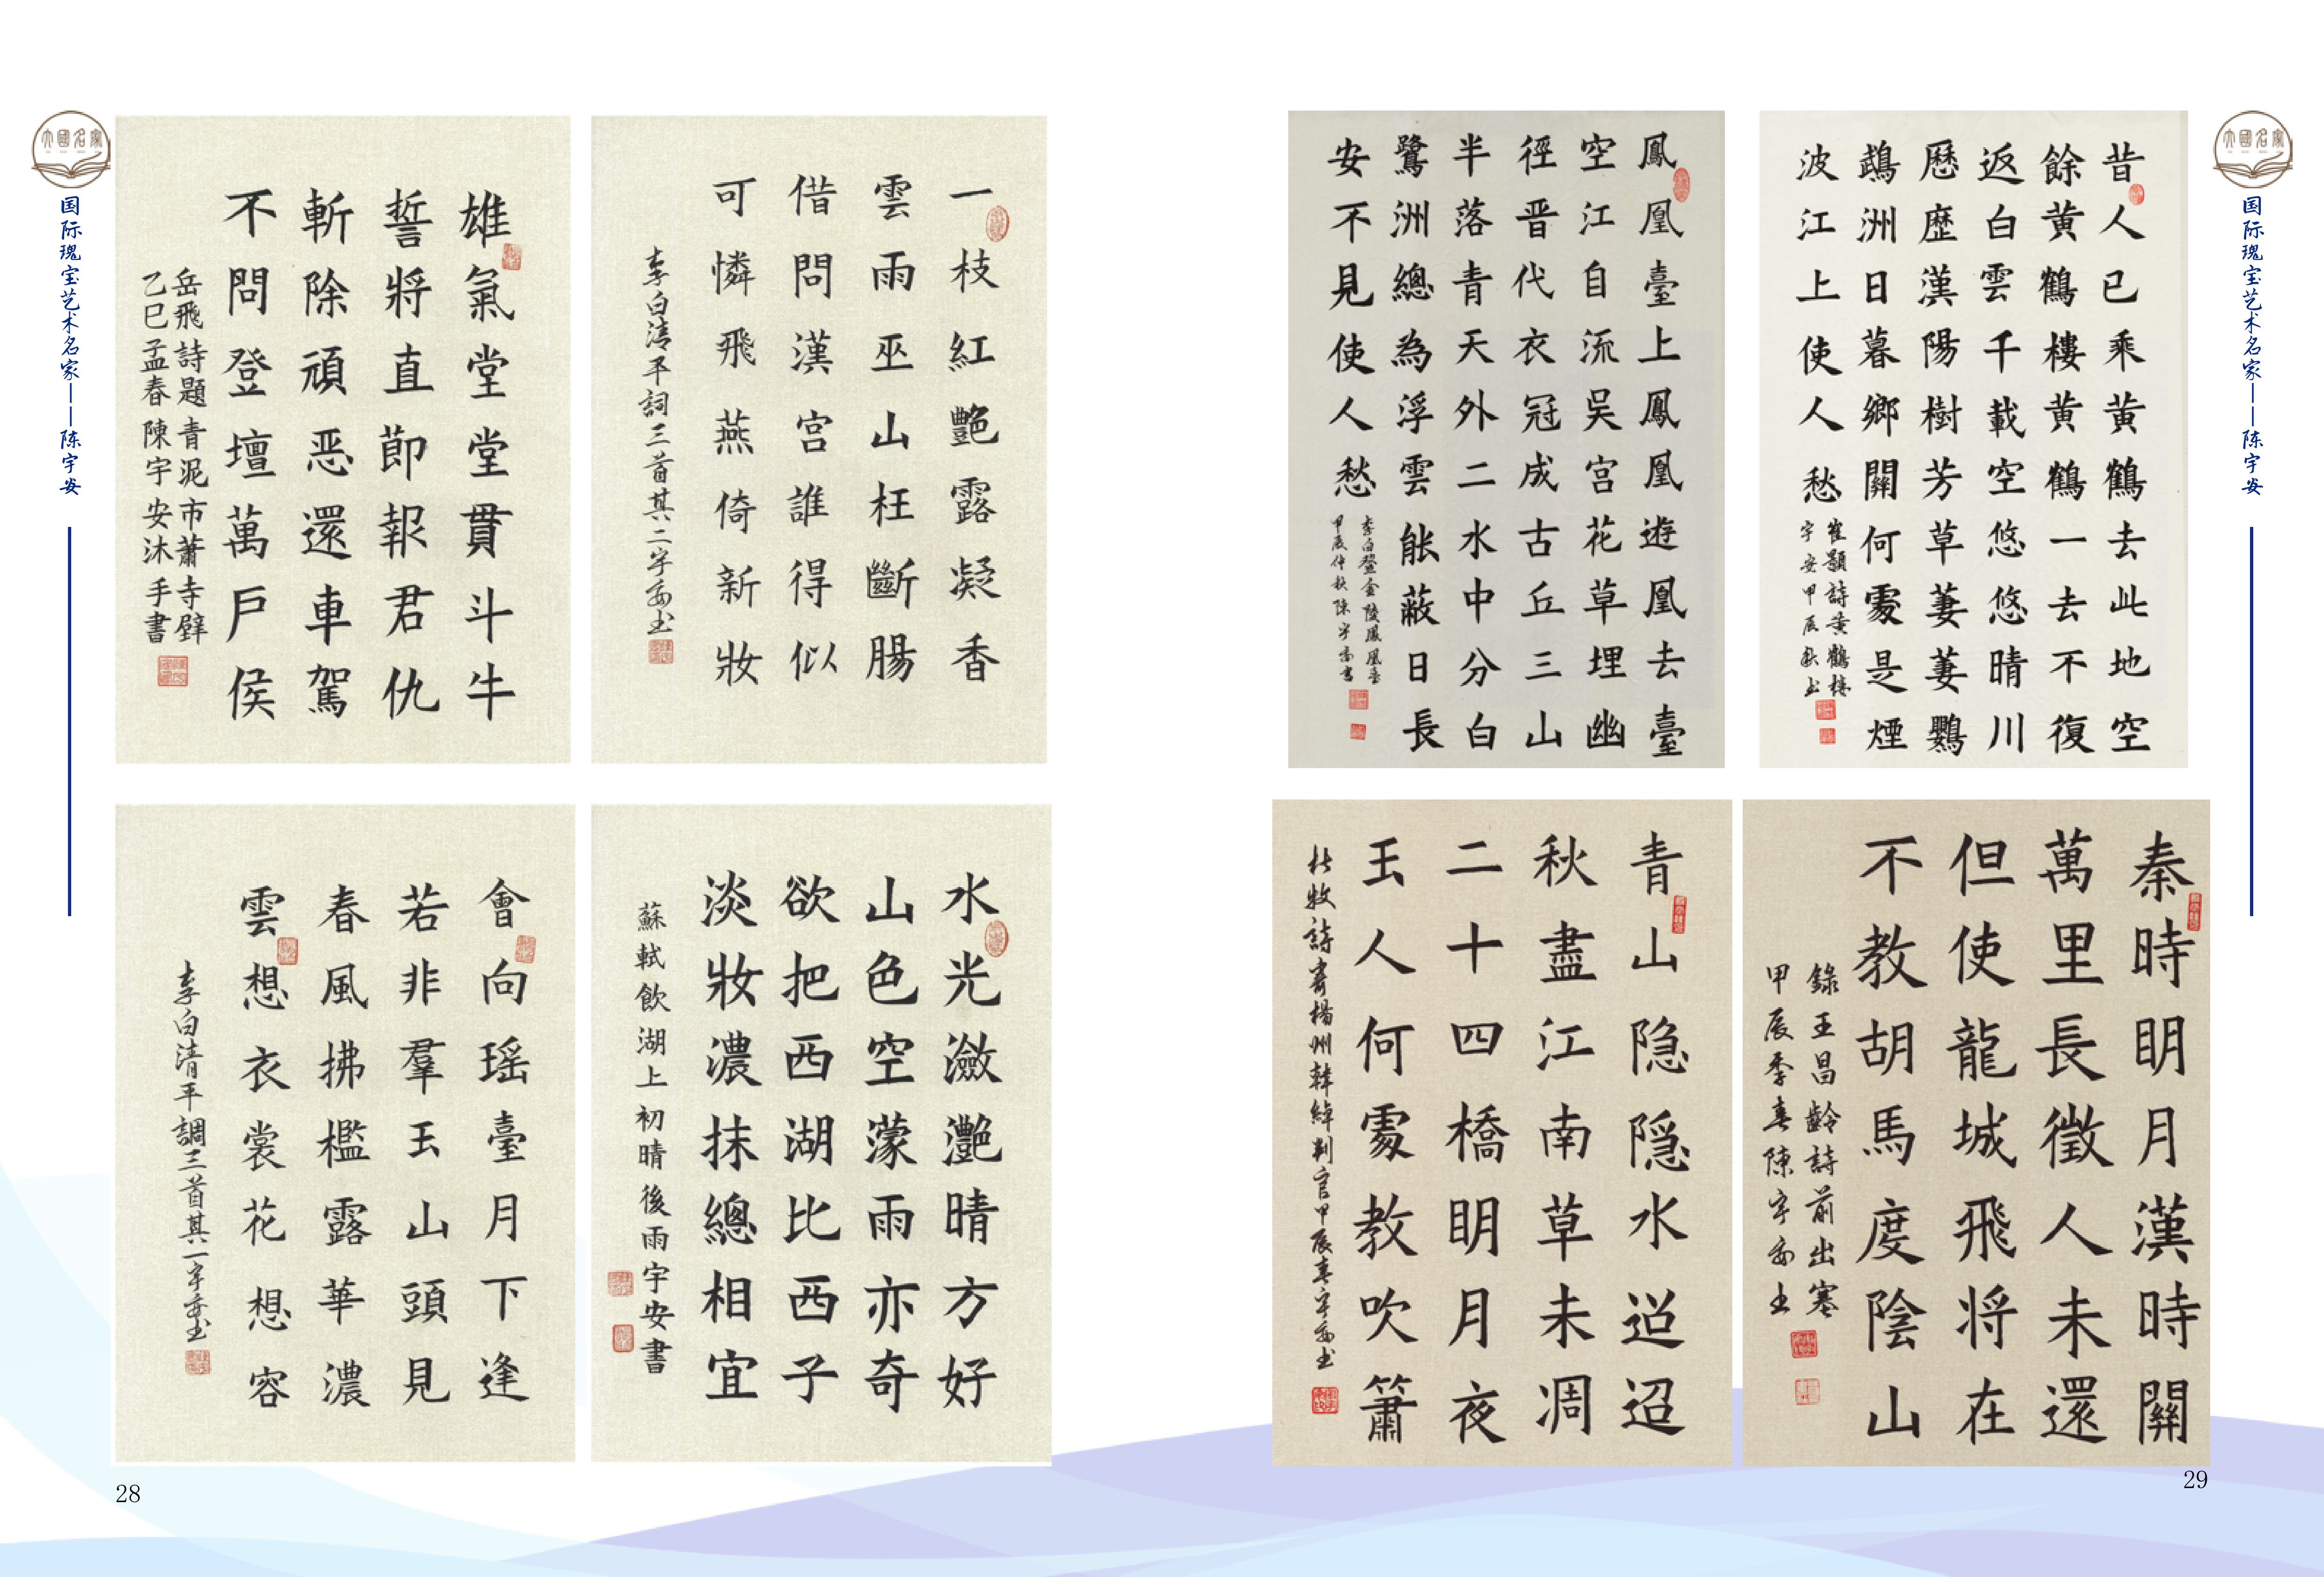 大國名家
国际瑰宝艺术名家——陈宇安
一枝紅艷露凝香
雲雨巫山枉斷腸
借問漢宫誰得似
可憐飛燕倚新妝
李白清平詞三首其二宇安书
雄氣堂堂貫斗牛
誓將直節報君仇
斬除頑恶還車駕
不問登壇萬戶侯
岳飛詩題青泥市蕭寺壁
乙巳孟春陳宇安沐手書
水光瀲灧晴方好
山色空濛雨亦奇
欲把西湖比西子
淡妝濃抹總相宜
蘇軾飲湖上初晴後雨宇安書
會向瑶臺月下逢
若非羣玉山頭見
春風拂檻露華濃
雲想衣裳花想容
李白清平調三首其一宇安书
28
大國名家
国际瑰宝艺术名家——陈宇安
昔人已乘黄鶴去此地空
餘黄鶴樓黄鶴一去不復
返白雲千載空悠悠晴川
歷歷漢陽樹芳草萋萋鸚
鵡洲日暮鄉關何處是煙
波江上使人愁
崔顥詩黄鶴樓
宇安甲辰秋书
鳳凰臺上鳳凰遊凰去臺
空江自流吴宫花草埋幽
徑晋代衣冠成古丘三山
半落青天外二水中分白
鷺洲總為浮雲能蔽日長
安不見使人愁
李白登金陵鳳凰臺
甲辰仲秋陳宇安書
秦時明月漢時關
萬里長徵人未還
但使龍城飛将在
不教胡馬度陰山
錄王昌齡詩前出塞
甲辰季春陳宇安书
青山隐隐水迢迢
秋盡江南草未凋
二十四橋明月夜
玉人何處教吹簫
杜牧詩寄楊州韓綽判官甲辰春宇安书
29